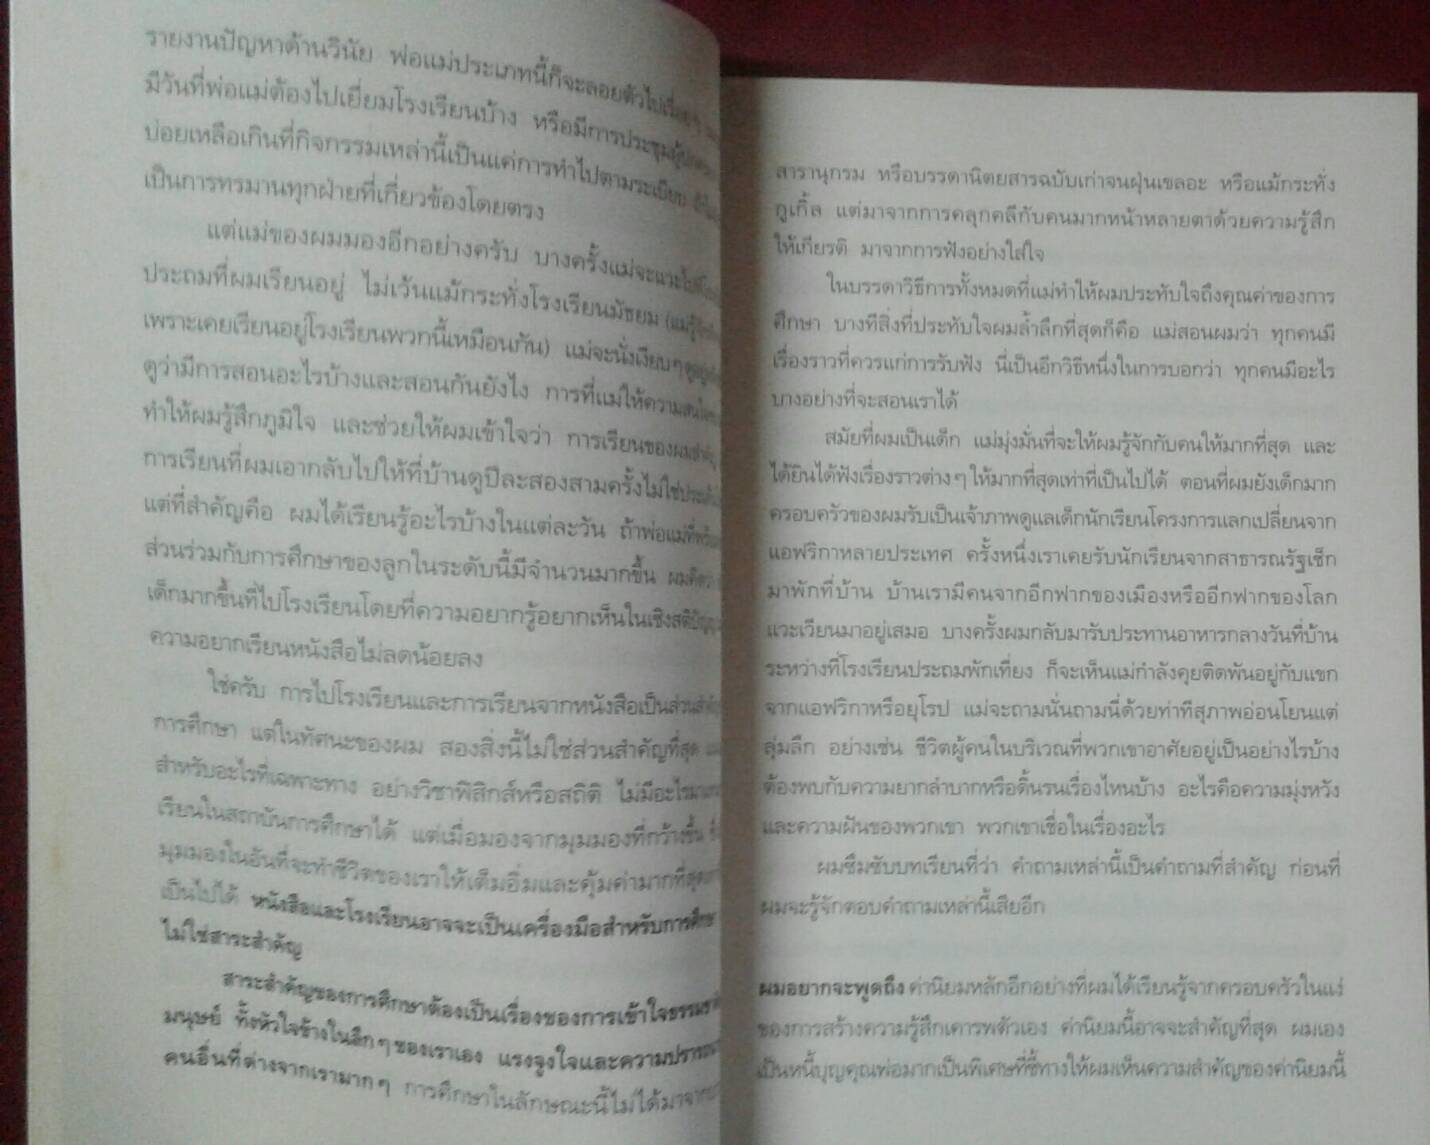 รายงานปัญหาด้านวินัย พ่อแม่ประเภทนี้ก็จะลอยตัวไปเรื่อยๆ
มีวันที่พ่อแม่ต้องไปเยี่ยมโรงเรียนบ้าง หรือมีการประชุมผู้ปกครอง
บ่อยเหลือเกินที่กิจกรรมเหล่านี้เป็นแค่การทำไปตามระเบียบ
เป็นการทรมานทุกฝ่ายที่เกี่ยวข้องโดยตรง
แต่แม่ของผมมองอีกอย่างครับ บางครั้งแม่จะแวะไปที่
ประถมที่ผมเรียนอยู่ ไม่เว้นแม้กระทั่งโรงเรียนมัธยม (แม่รู้จัก
เพราะเคยเรียนอยู่โรงเรียนพวกนี้เหมือนกัน) แม่จะนั่งเงียบๆ
ดูว่ามีการสอนอะไรบ้างและสอนกันยังไง การที่แม่ให้ความสนใจ
ทำให้ผมรู้สึกภูมิใจ และช่วยให้ผมเข้าใจว่า การเรียนของผมสำคัญ
การเรียนที่ผมเอากลับไปให้ที่บ้านดูปีละสองสามครั้งไม่ใช่ประเด็น
แต่ที่สำคัญคือ ผมได้เรียนรู้อะไรบ้างในแต่ละวัน ถ้าพ่อแม่ที่
ส่วนร่วมกับการศึกษาของลูกในระดับนี้มีจำนวนมากขึ้น ผมคิดว่า
เด็กมากขึ้นที่ไปโรงเรียนโดยที่ความอยากรู้อยากเห็นในเชิงสติปัญญา
ความอยากเรียนหนังสือไม่ลดน้อยลง
ใช่ครับ การไปโรงเรียนและการเรียนจากหนังสือเป็นส่วนสำคัญ
การศึกษา แต่ในทัศนะของผม สองสิ่งนี้ไม่ใช่ส่วนสำคัญที่สุด
สำหรับอะไรที่เฉพาะทาง อย่างวิชาฟิสิกส์หรือสถิติ ไม่มีอะไรมาแทน
เรียนในสถาบันการศึกษาได้ แต่เมื่อมองจากมุมมองที่กว้างขึ้น
มุมมองในอันที่จะทำชีวิตของเราให้เต็มอิ่มและคุ้มค่ามากที่สุด
เป็นไปได้ หนังสือและโรงเรียนอาจจะเป็นเครื่องมือสำหรับการศึกษา
ไม่ใช่สาระสำคัญ
สาระสำคัญของการศึกษาต้องเป็นเรื่องของการเข้าใจธรรมชาติ
มนุษย์ ทั้งหัวใจข้างในลึกๆ ของเราเอง แรงจูงใจและความปรารถนา
คนอื่นที่ต่างจากเรามากๆ การศึกษาในลักษณะนี้ไม่ได้มาจาก
สารานุกรม หรือบรรดานิตยสารฉบับเก่าจนฝุ่นเขลอะ หรือแม้กระทั่ง
กูเกิ้ล แต่มาจากการคลุกคลีกับคนมากหน้าหลายตาด้วยความรู้สึก
ให้เกียรติ มาจากการฟังอย่างใส่ใจ
ในบรรดาวิธีการทั้งหมดที่แม่ทำให้ผมประทับใจถึงคุณค่าของการ
ศึกษา บางทีสิ่งที่ประทับใจผมล้ำลึกที่สุดก็คือ แม่สอนผมว่า ทุกคนมี
เรื่องราวที่ควรแก่การรับฟัง นี่เป็นอีกวิธีหนึ่งในการบอกว่า ทุกคนมีอะไร
บางอย่างที่จะสอนเราได้
สมัยที่ผมเป็นเด็ก แม่มุ่งมั่นที่จะให้ผมรู้จักกับคนให้มากที่สุด และ
ได้ยินได้ฟังเรื่องราวต่างๆ ให้มากที่สุดเท่าที่เป็นไปได้ ตอนที่ผมยังเด็กมาก
ครอบครัวของผมรับเป็นเจ้าภาพดูแลเด็กนักเรียนโครงการแลกเปลี่ยนจาก
แอฟริกาหลายประเทศ ครั้งหนึ่งเราเคยรับนักเรียนจากสาธารณรัฐเช็ก
มาพักที่บ้าน บ้านเรามีคนจากอีกฟากของเมืองหรืออีกฟากของโลก
แวะเวียนมาอยู่เสมอ บางครั้งผมกลับมารับประทานอาหารกลางวันที่บ้าน
ระหว่างที่โรงเรียนประถมพักเที่ยง ก็จะเห็นแม่กำลังคุยติดพันอยู่กับแขก
จากแอฟริกาหรือยุโรป แม่จะถามนั่นถามนี่ด้วยท่าทีสุภาพอ่อนโยนแต่
ลุ่มลึก อย่างเช่น ชีวิตผู้คนในบริเวณที่พวกเขาอาศัยอยู่เป็นอย่างไรบ้าง
ต้องพบกับความยากลำบากหรือดิ้นรนเรื่องไหนบ้าง อะไรคือความมุ่งหวัง
และความฝันของพวกเขา พวกเขาเชื่อในเรื่องอะไร
ผมซึมซับบทเรียนที่ว่า คำถามเหล่านี้เป็นคำถามที่สำคัญ ก่อนที่
ผมจะรู้จักตอบคำถามเหล่านี้เสียอีก
ผมอยากจะพูดถึง ค่านิยมหลักอีกอย่างที่ผมได้เรียนรู้จากครอบครัวในแง่
ของการสร้างความรู้สึกเคารพตัวเอง ค่านิยมนี้อาจจะสำคัญที่สุด ผมเอง
เป็นหนี้บุญคุณพ่อมากเป็นพิเศษที่ชี้ทางให้ผมเห็นความสำคัญของค่านิยมนี้